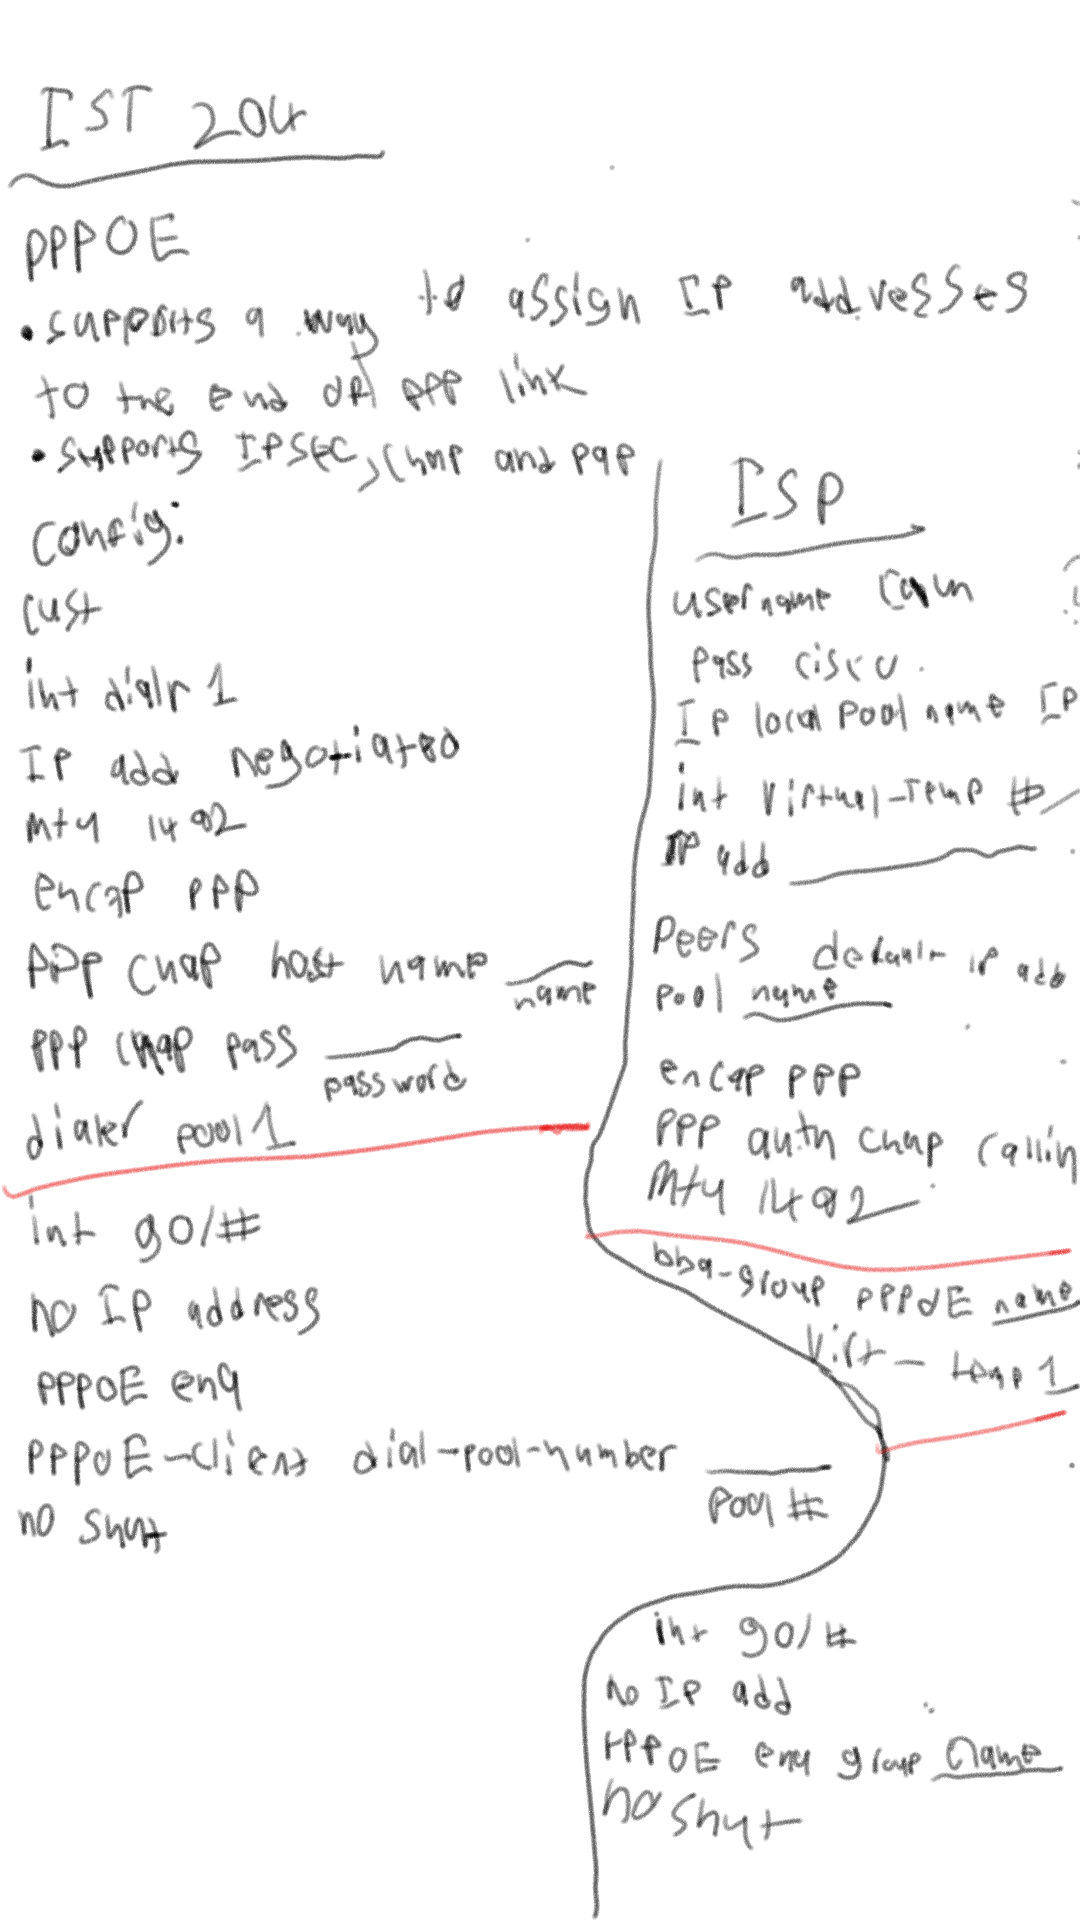 IST 204
PPPOE
• supports a way to assign IP addresses
to the end of PPP link
• supports IPSEC, Chap and pap
Config:
Cust
int dialr 1
IP add negotiated
mtu 1492
encap PPP
PPP Chap host name ____
name
PPP Chap pass ____
password
dialer pool 1
int g0/#
no IP address
PPPoE ena
PPPoE-Client dial-pool-number ____
Pool #
no shut
ISP
username
pass cisco
Ip local pool name IP
int Virtual-Temp #
IP add ____
Peers default ip add
pool name
encap PPP
PPP auth chap callin
Mtu 1492
bba-group PPPoE name
Virt-temp 1
int g0/#
no IP add
PPPOE ena group name
no shut